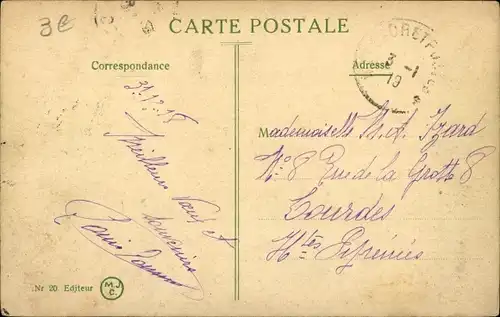 3€
CARTE POSTALE
Correspondance
Adresse
3-1
19
31.12.18
Meilleurs Vœux et
souvenirs
Mademoiselle M. L. Izard
N° 8 Rue de la Grotte 8
Lourdes
Htes Pyrénées
Nr 20 Editeur
M J C